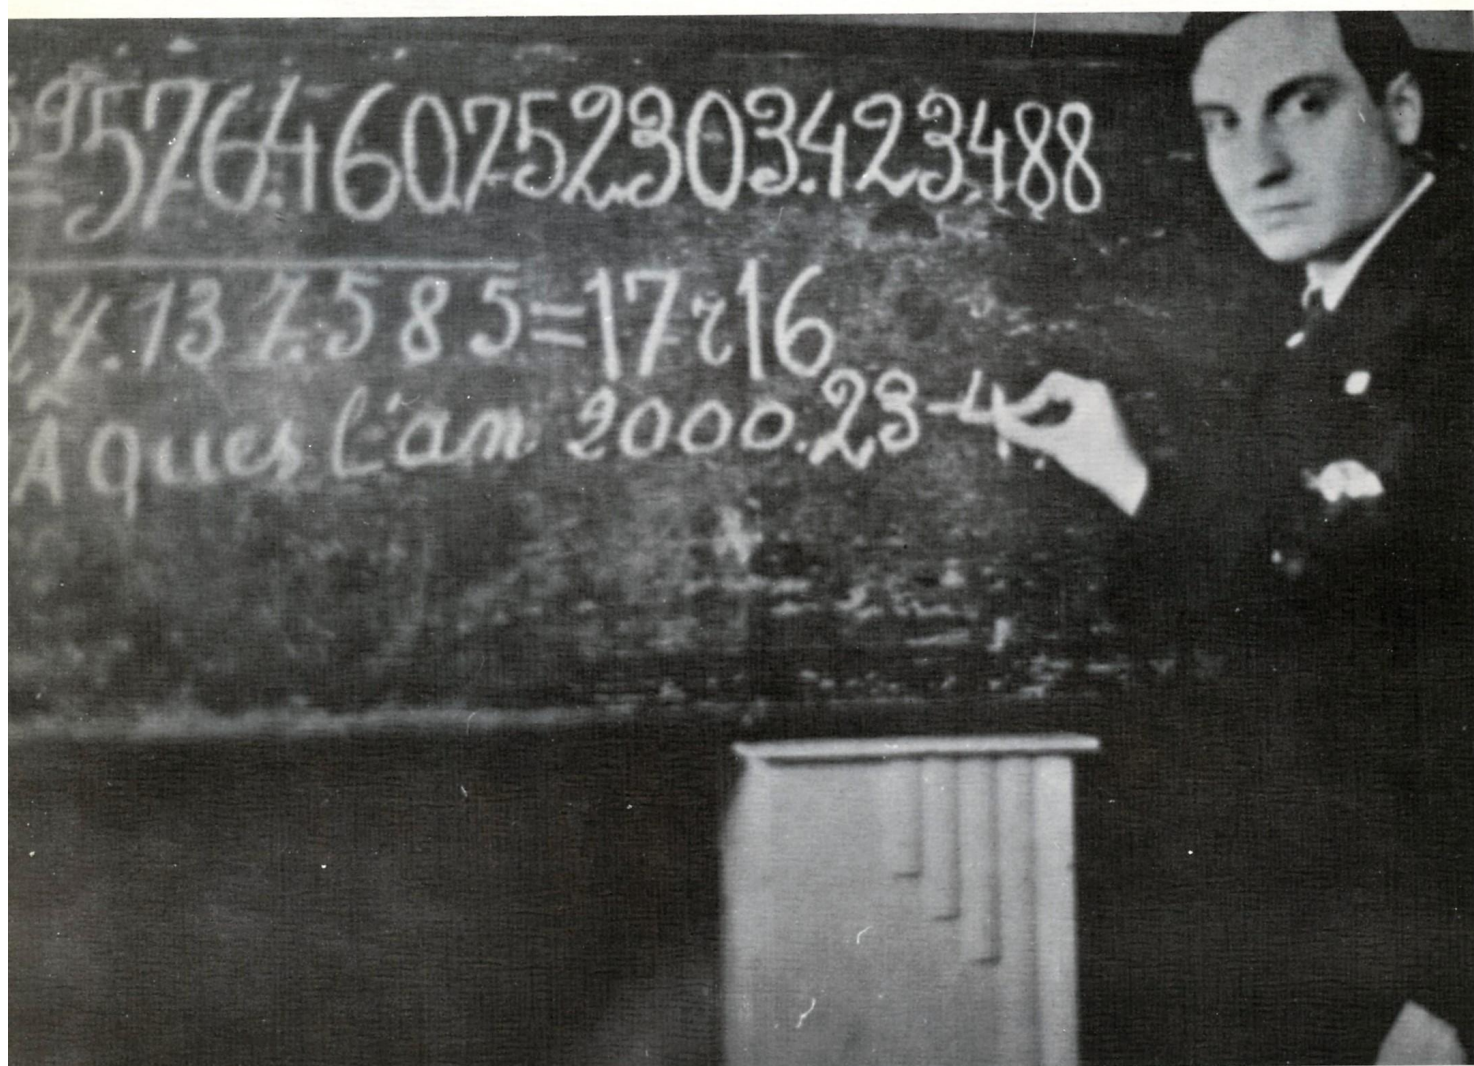 59
=576.460.752.303.423.488
24.137.585=17 r 16
Âques l'an 2000.23-4.